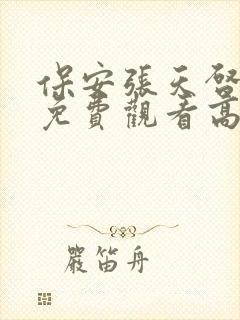 保安張天啓
免費觀看高
嚴笛舟